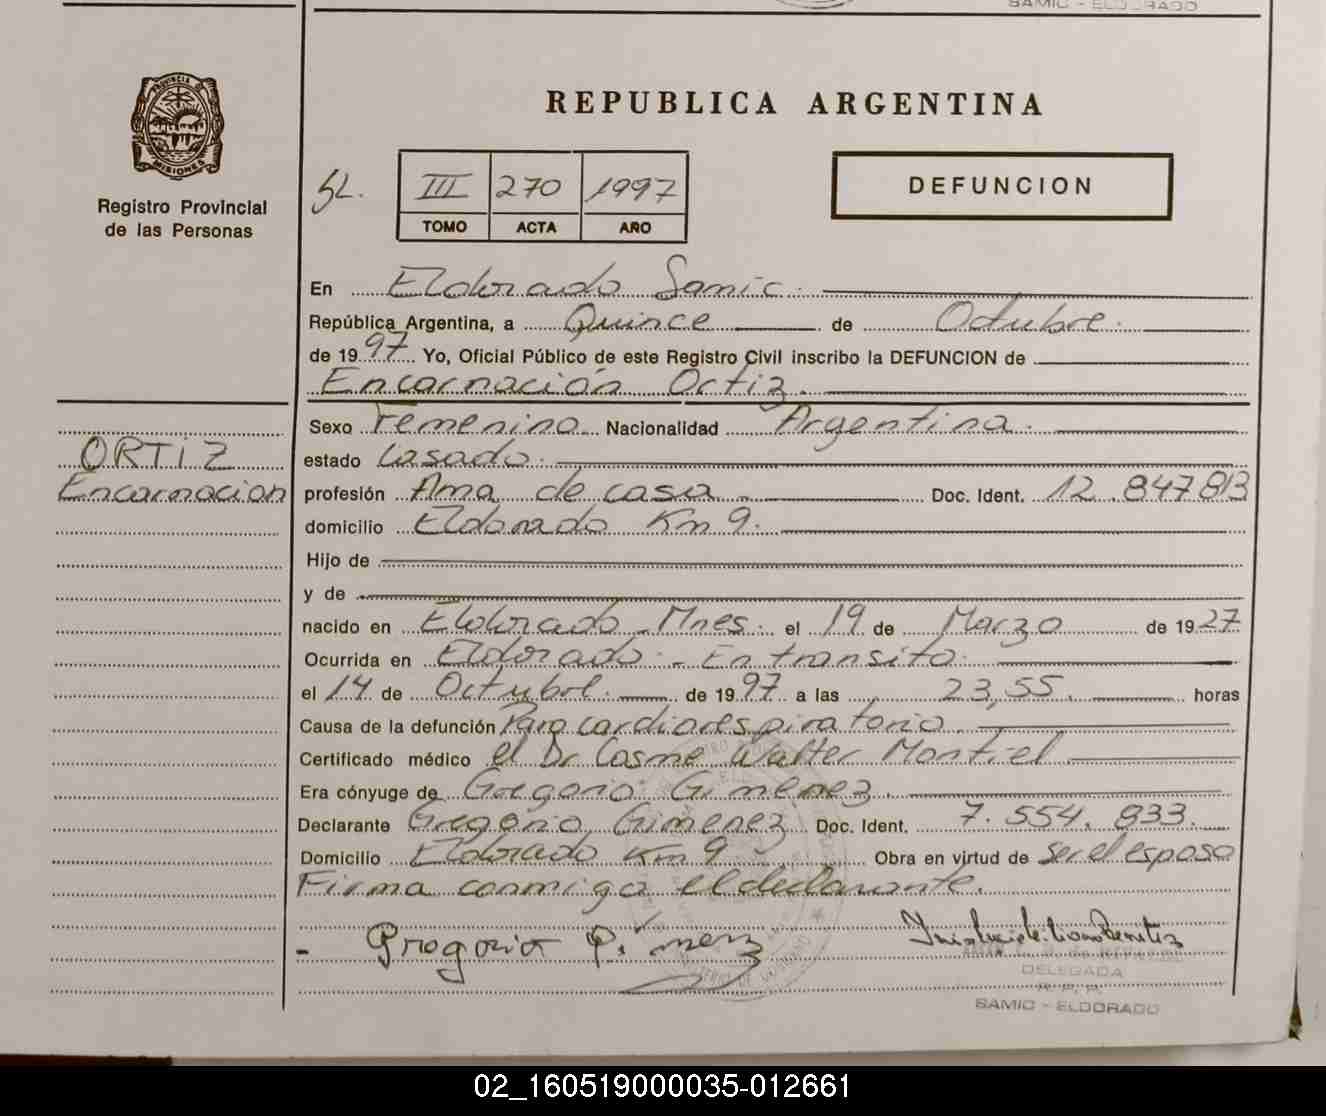 SAMIC - ELDORADO
PROVINCIA DE
MISIONES
Registro Provincial
de las Personas
REPUBLICA ARGENTINA
SL. III 270 1997
TOMO ACTA AÑO
DEFUNCION
En Eldorado Samic.
República Argentina, a Quince de Octubre.
de 1997 Yo, Oficial Público de este Registro Civil inscribo la DEFUNCION de
Encarnación Ortiz.
Sexo Femenino Nacionalidad Argentina.
ORTIZ
Encarnacion
estado Casado.
profesión Ama de casa. Doc. Ident. 12.847813
domicilio Eldorado Km 9.
Hijo de
y de
nacido en Eldorado Mnes. el 19 de Marzo de 1927
Ocurrida en Eldorado. - En transito.
el 14 de Octubre. de 1997 a las 23,55. horas
Causa de la defunción Paro cardiorespiratorio.
Certificado médico el Dr Cosme Walter Montiel
Era cónyuge de Gregorio Gimenez.
Declarante Gregorio Gimenez Doc. Ident. 7.554.833.
Domicilio Eldorado Km 9 Obra en virtud de ser el esposo
Firma conmigo el declarante.
DELEGADA
R. P. P.
SAMIC - ELDORADO
02_160519000035-012661